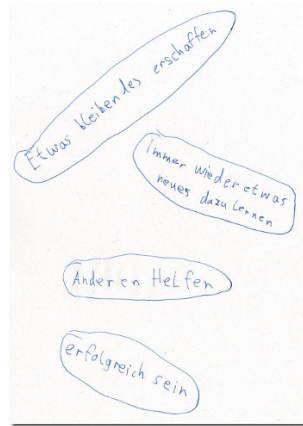 Etwas bleibendes erschaffen
immer wieder etwas
neues dazu lernen
Anderen Helfen
erfolgreich sein